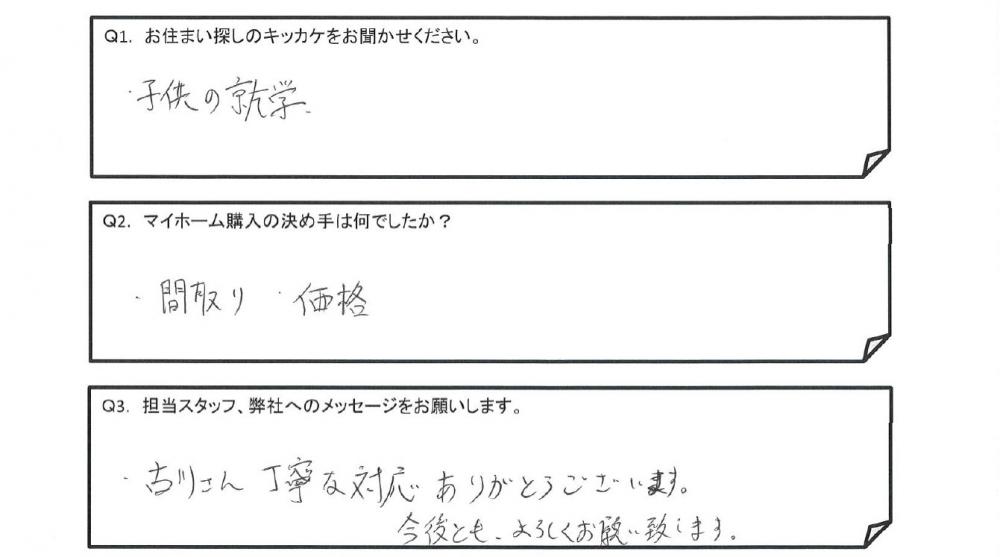 Q1. お住まい探しのキッカケをお聞かせください。
・子供の就学.
Q2. マイホーム購入の決め手は何でしたか？
・間取り ・価格
Q3. 担当スタッフ、弊社へのメッセージをお願いします。
・古川さん 丁寧な対応ありがとうございます。
今後とも、よろしくお願い致します。